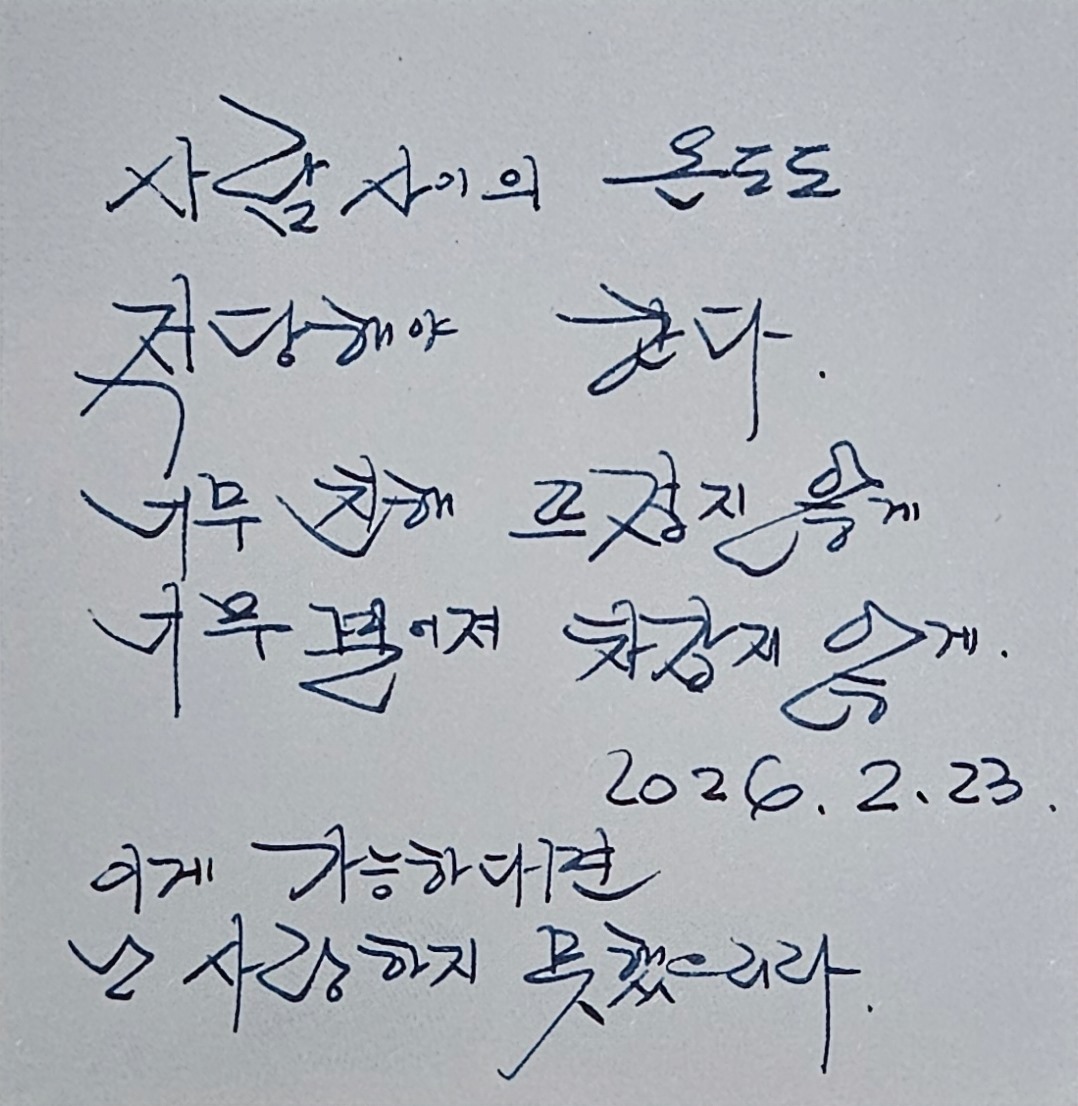 사람 사이의 온도도
적당해야 한다.
너무 친해 뜨겁지 않게
너무 멀어져 차갑지 않게.
2026. 2. 23.
이게 가능하다면
난 사랑하지 못했으리라.